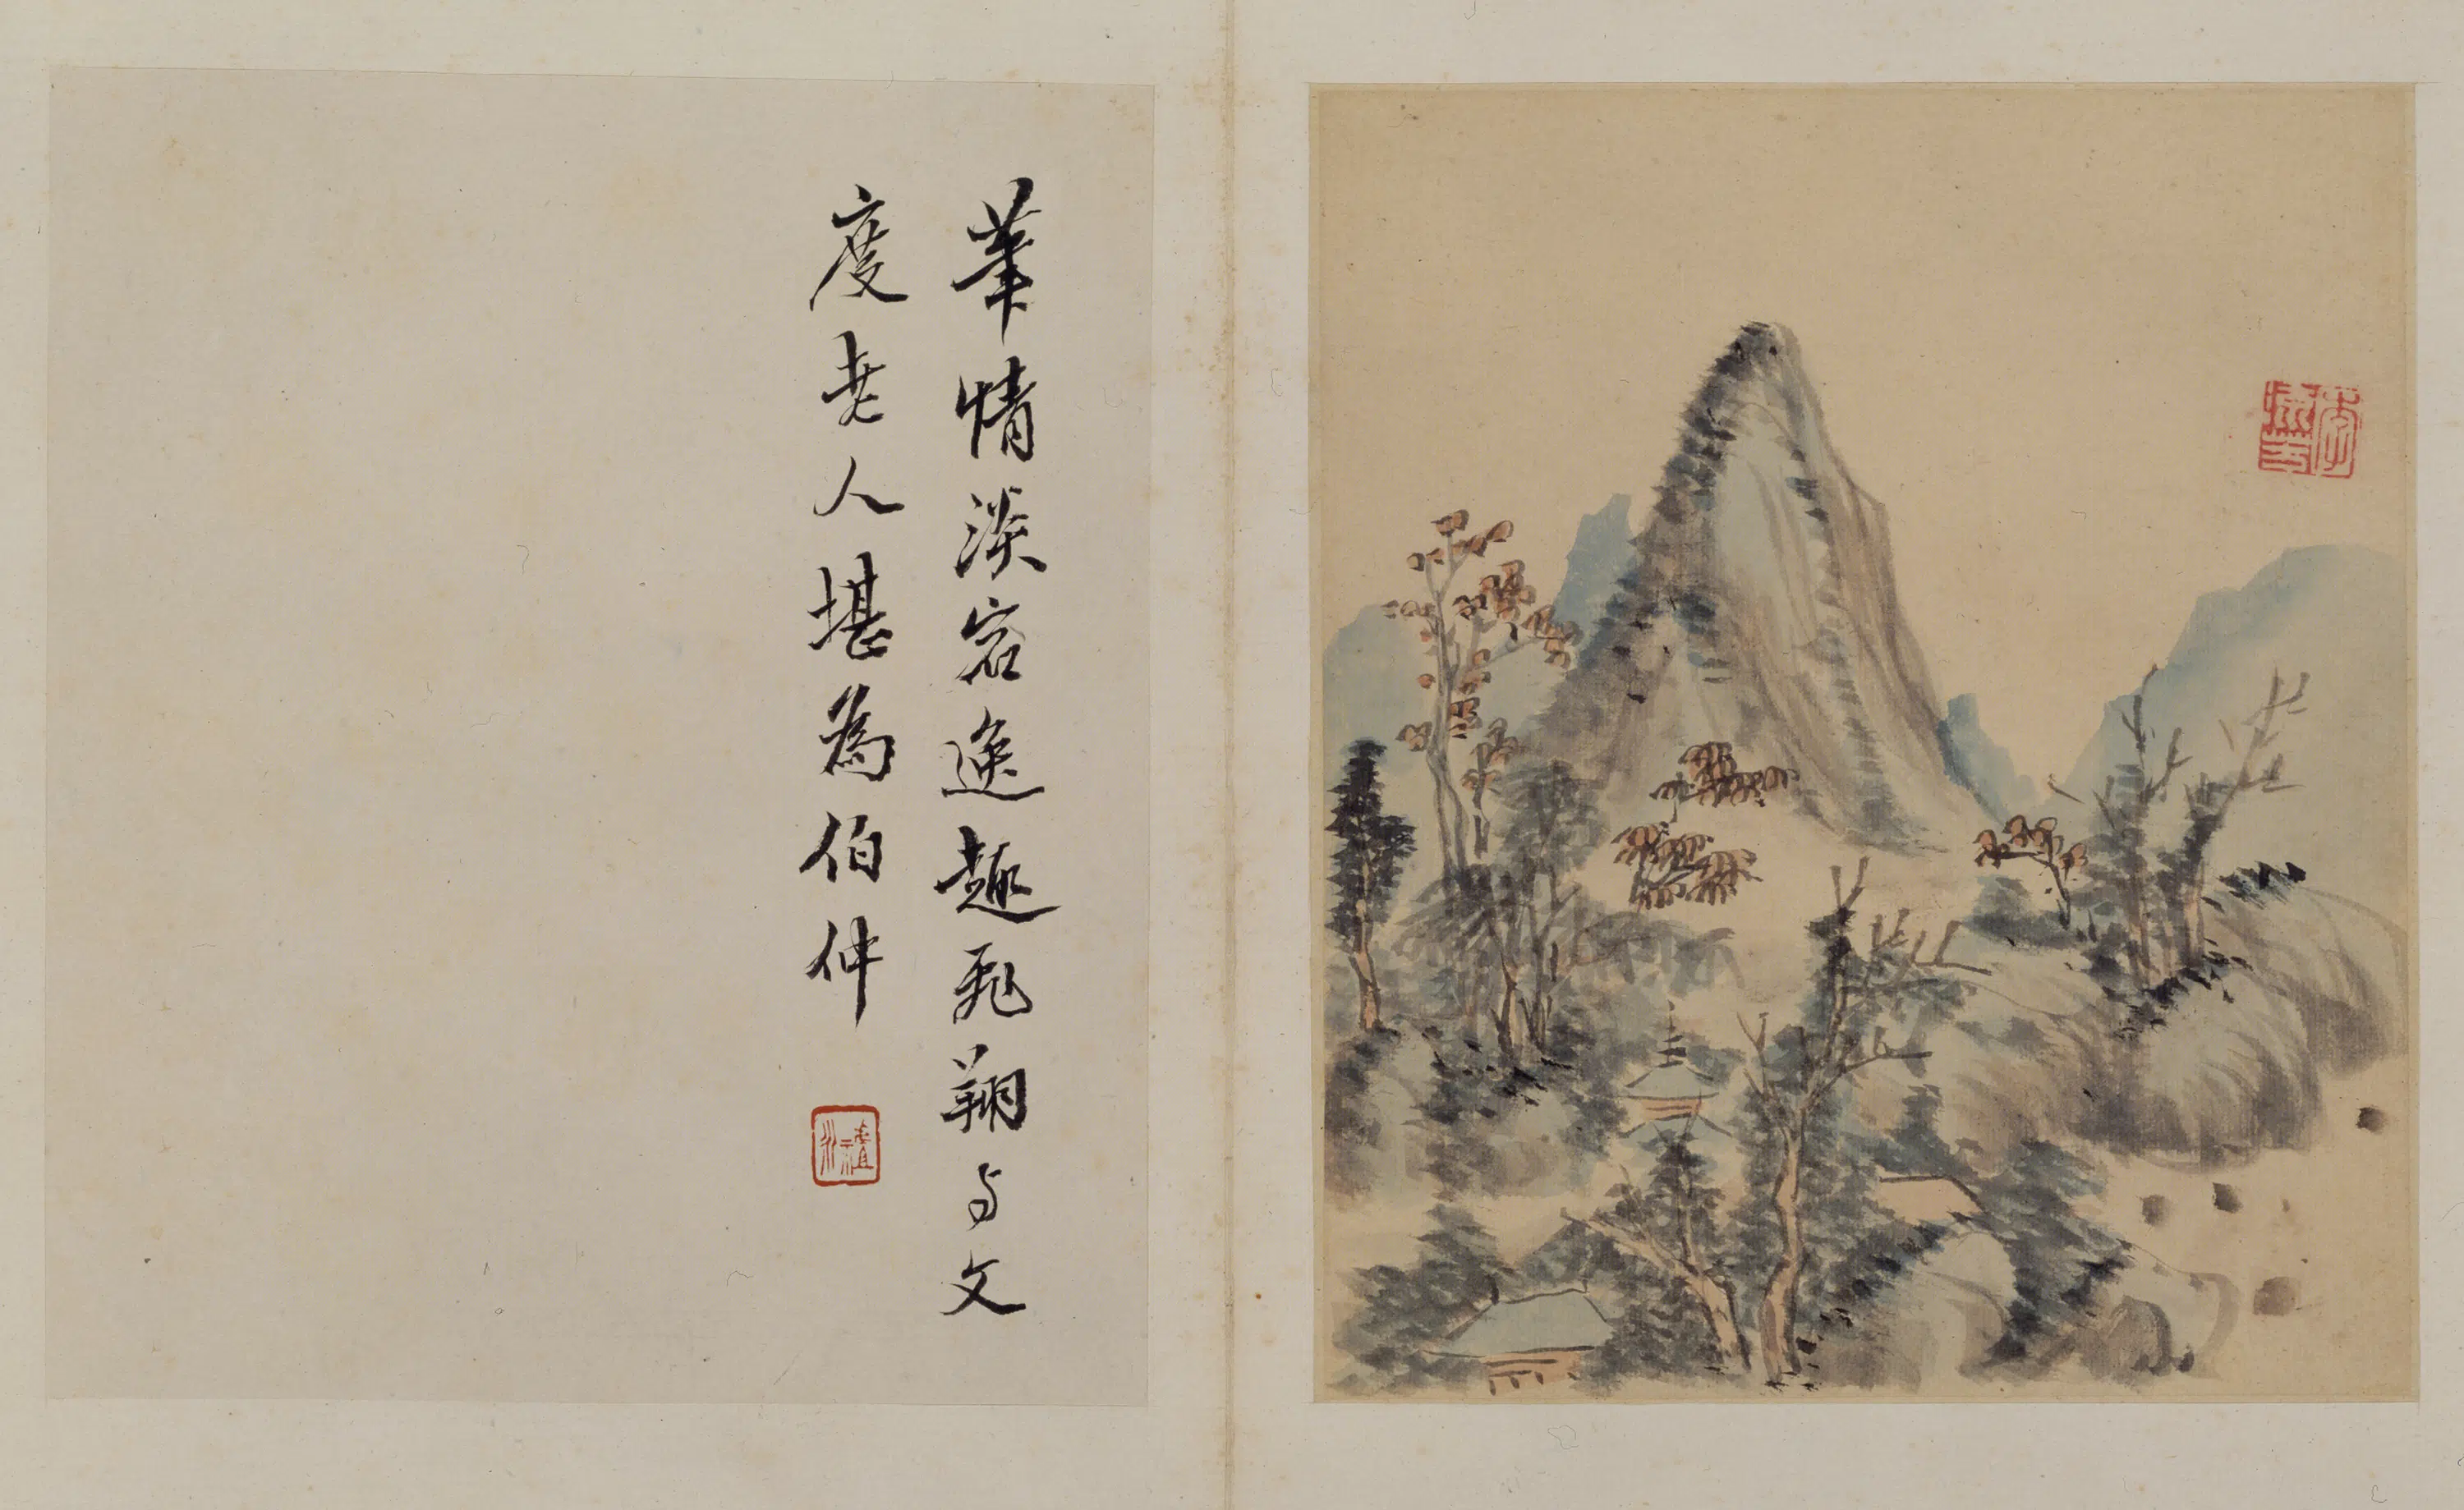 筆情淡宕逸趣飛翔与文
度老人堪為伯仲